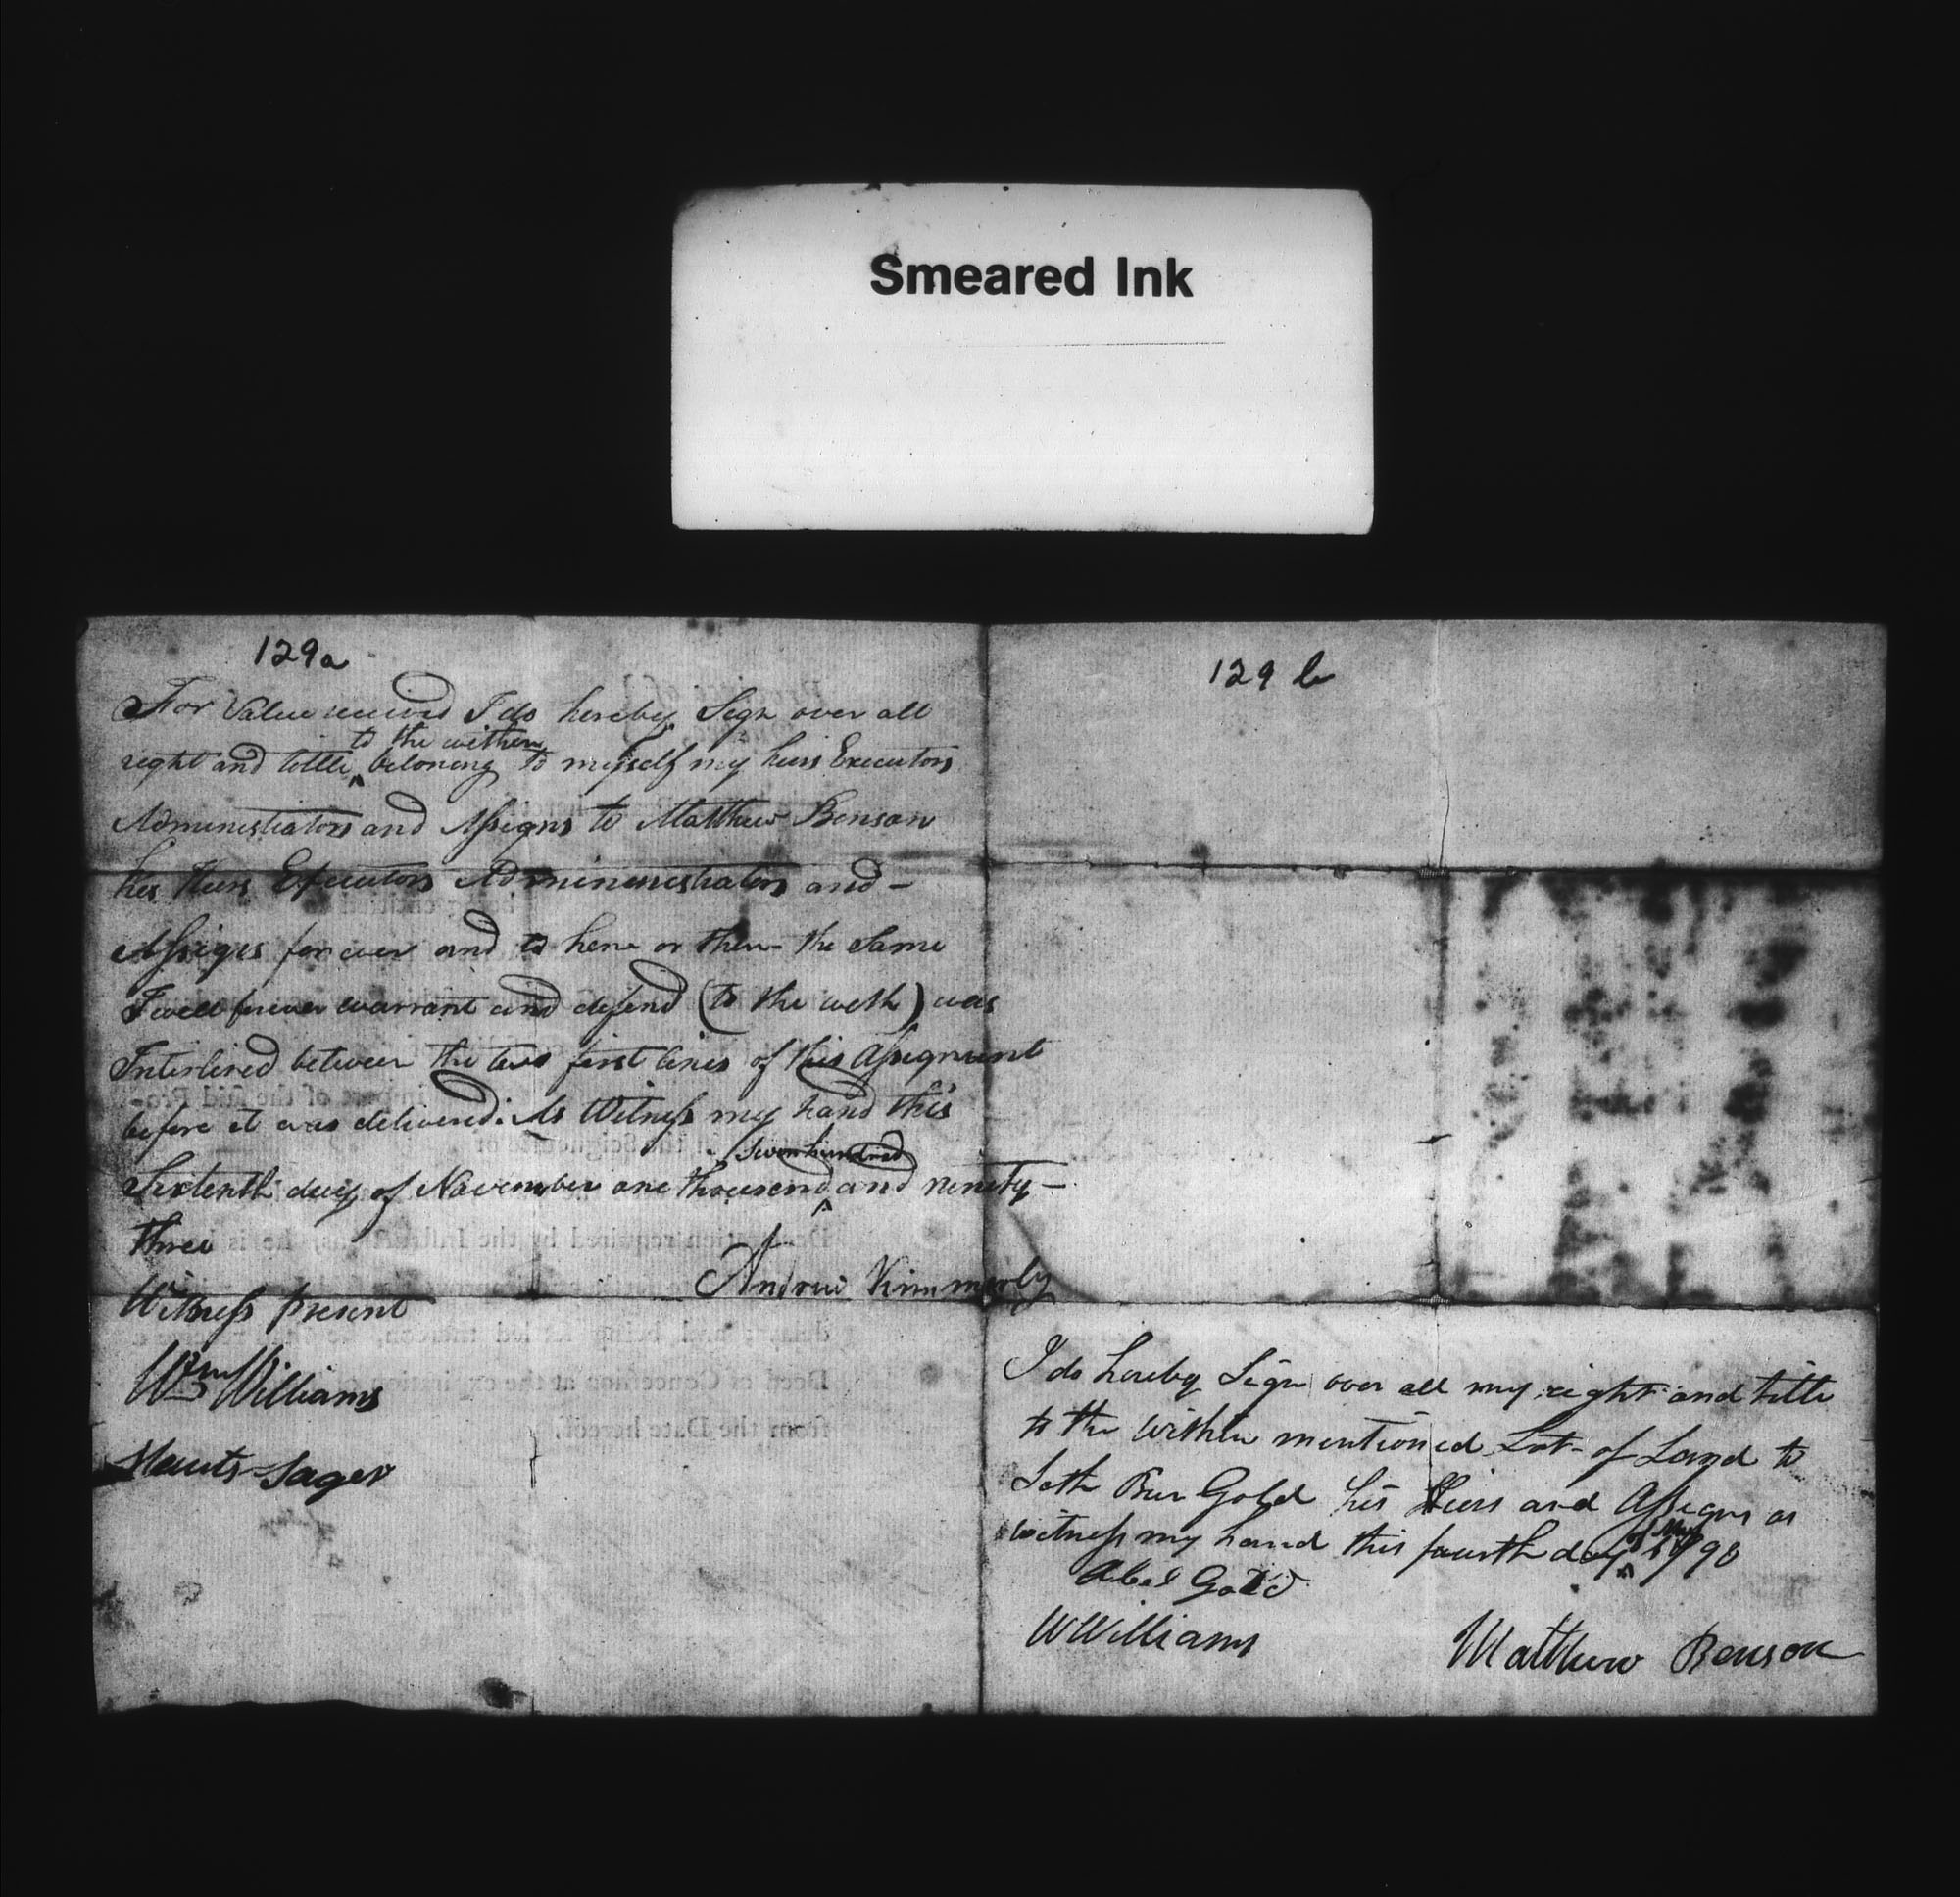 Smeared Ink
129a
For Value received I do hereby Sign over all
to the within
right and tittle ^ beloning to myself my heirs Executors
Administrators and Assigns to Matthew Benson
his Heirs Executors Admininistrators and -
Assigns for ever and to him or them the Same
I will forever warrant and defend (to the with) was
Interlined between the two first lines of this Assignment
before it was delivered. As Witness my hand this
Seven hundred
Sixtenth day of November one thousend ^ and ninety -
three
Andrew Kimmerly
Witness Present
Wm Williams
Sager
from the Date hereof.
129 b
I do hereby Sign over all my right and title
to the within mentioned Lot of Land to
Seth Bur Gold his Heirs and Assigns as
of May
witness my hand this fourth day ^ 1798
Abel Gold
WWilliams
Matthew Benson